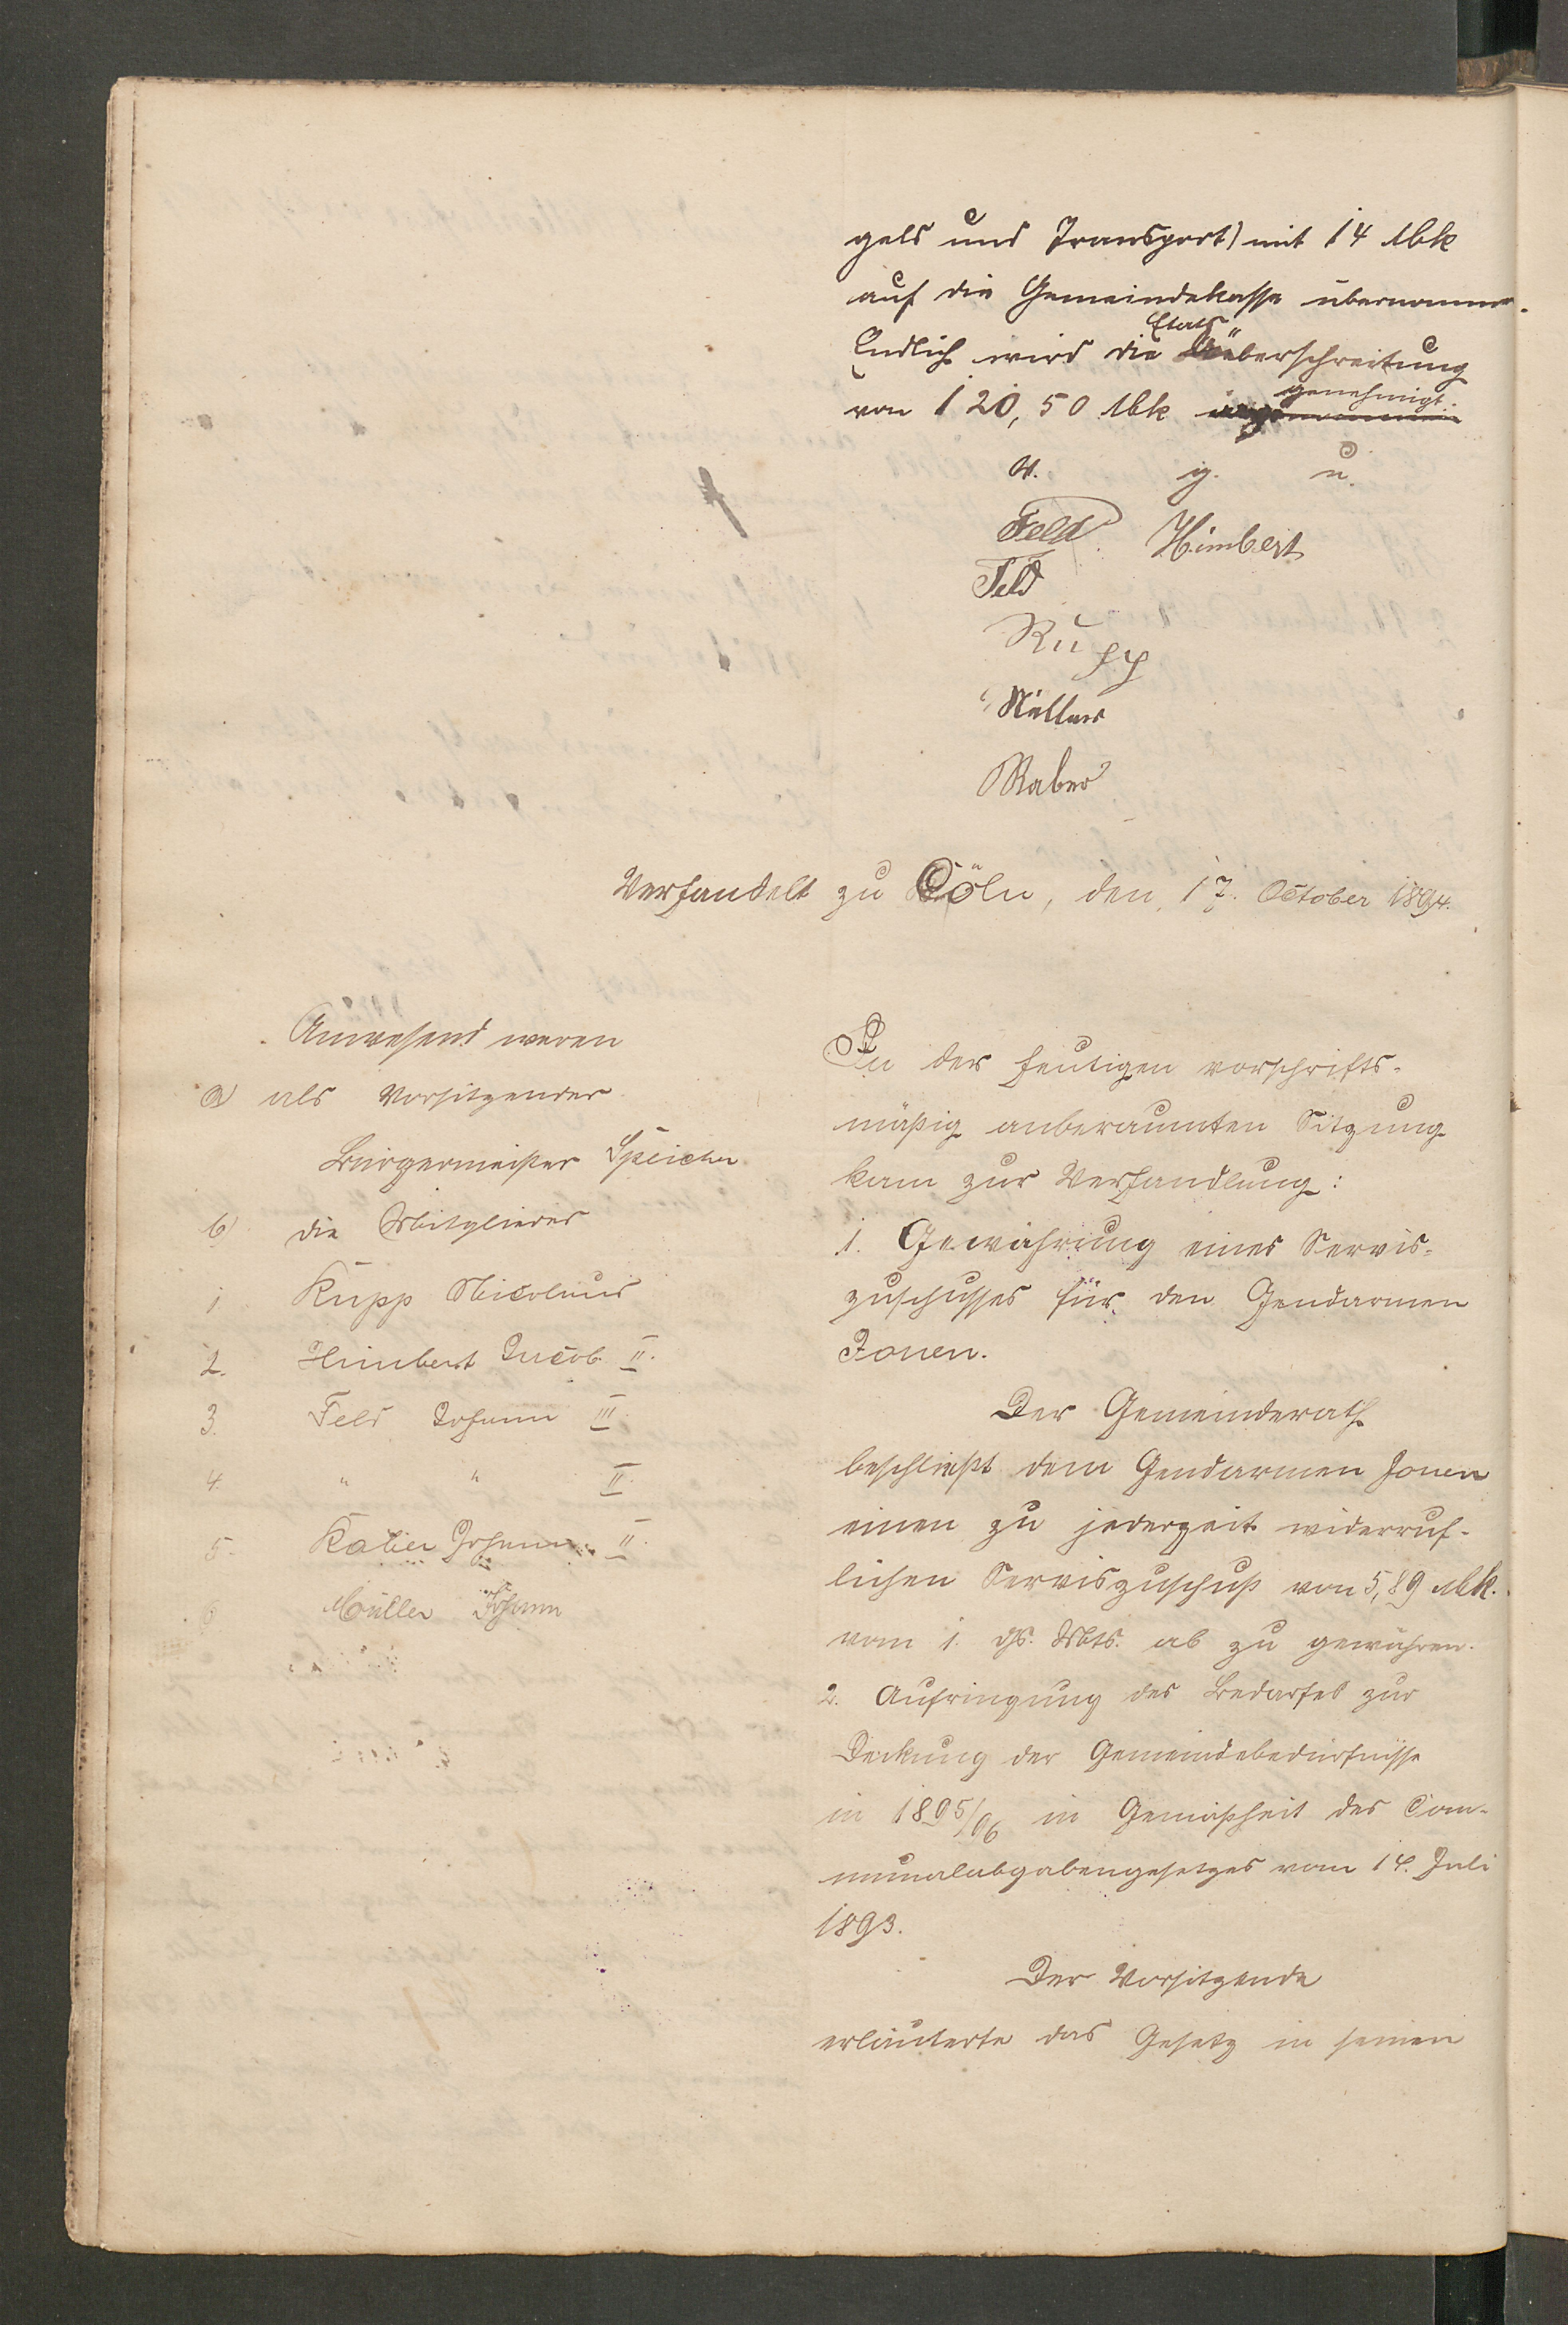 geld und Transport) mit 14 Mk
auf die Gemeindekasse übernommen.
Endlich wird die Etats überschreitung
von 120,50 Mk genehmigt.
v. g. u.
Feld Himbert
Feld
Rupp
Müller
Raber
Verhandelt zu Cöln, den 17. October 1894.
Anwesend waren
a) als Vorsitzender
Bürgermeister Speicher
b) die Mitglieder
1 Rupp Nicolaus
2. Himbert Jacob II.
3. Feld Johann III.
4. " " II.
5. Raber Johann II.
6 Müller Johann
In der heutigen vorschrifts-
mäßig anberaumten Sitzung
kam zur Verhandlung:
1. Gewährung eines Servis-
zuschusses für den Gendarmen
Jonen.
Der Gemeinderath
beschließt dem Gendarmen Jonen
einen zu jederzeit widerruf-
lichen Serviszuschuß von 5,89 Mk.
vom 1. ds. Mts. ab zu gewähren.
2. Aufringung des Bedarfes zur
Deckung der Gemeindebedürfnisse
in 1895/96 in Gemäßheit des Com-
munalabgabengesetzes vom 14. Juli
1893.
Der Vorsitzende
erläuterte das Gesetz in seinen